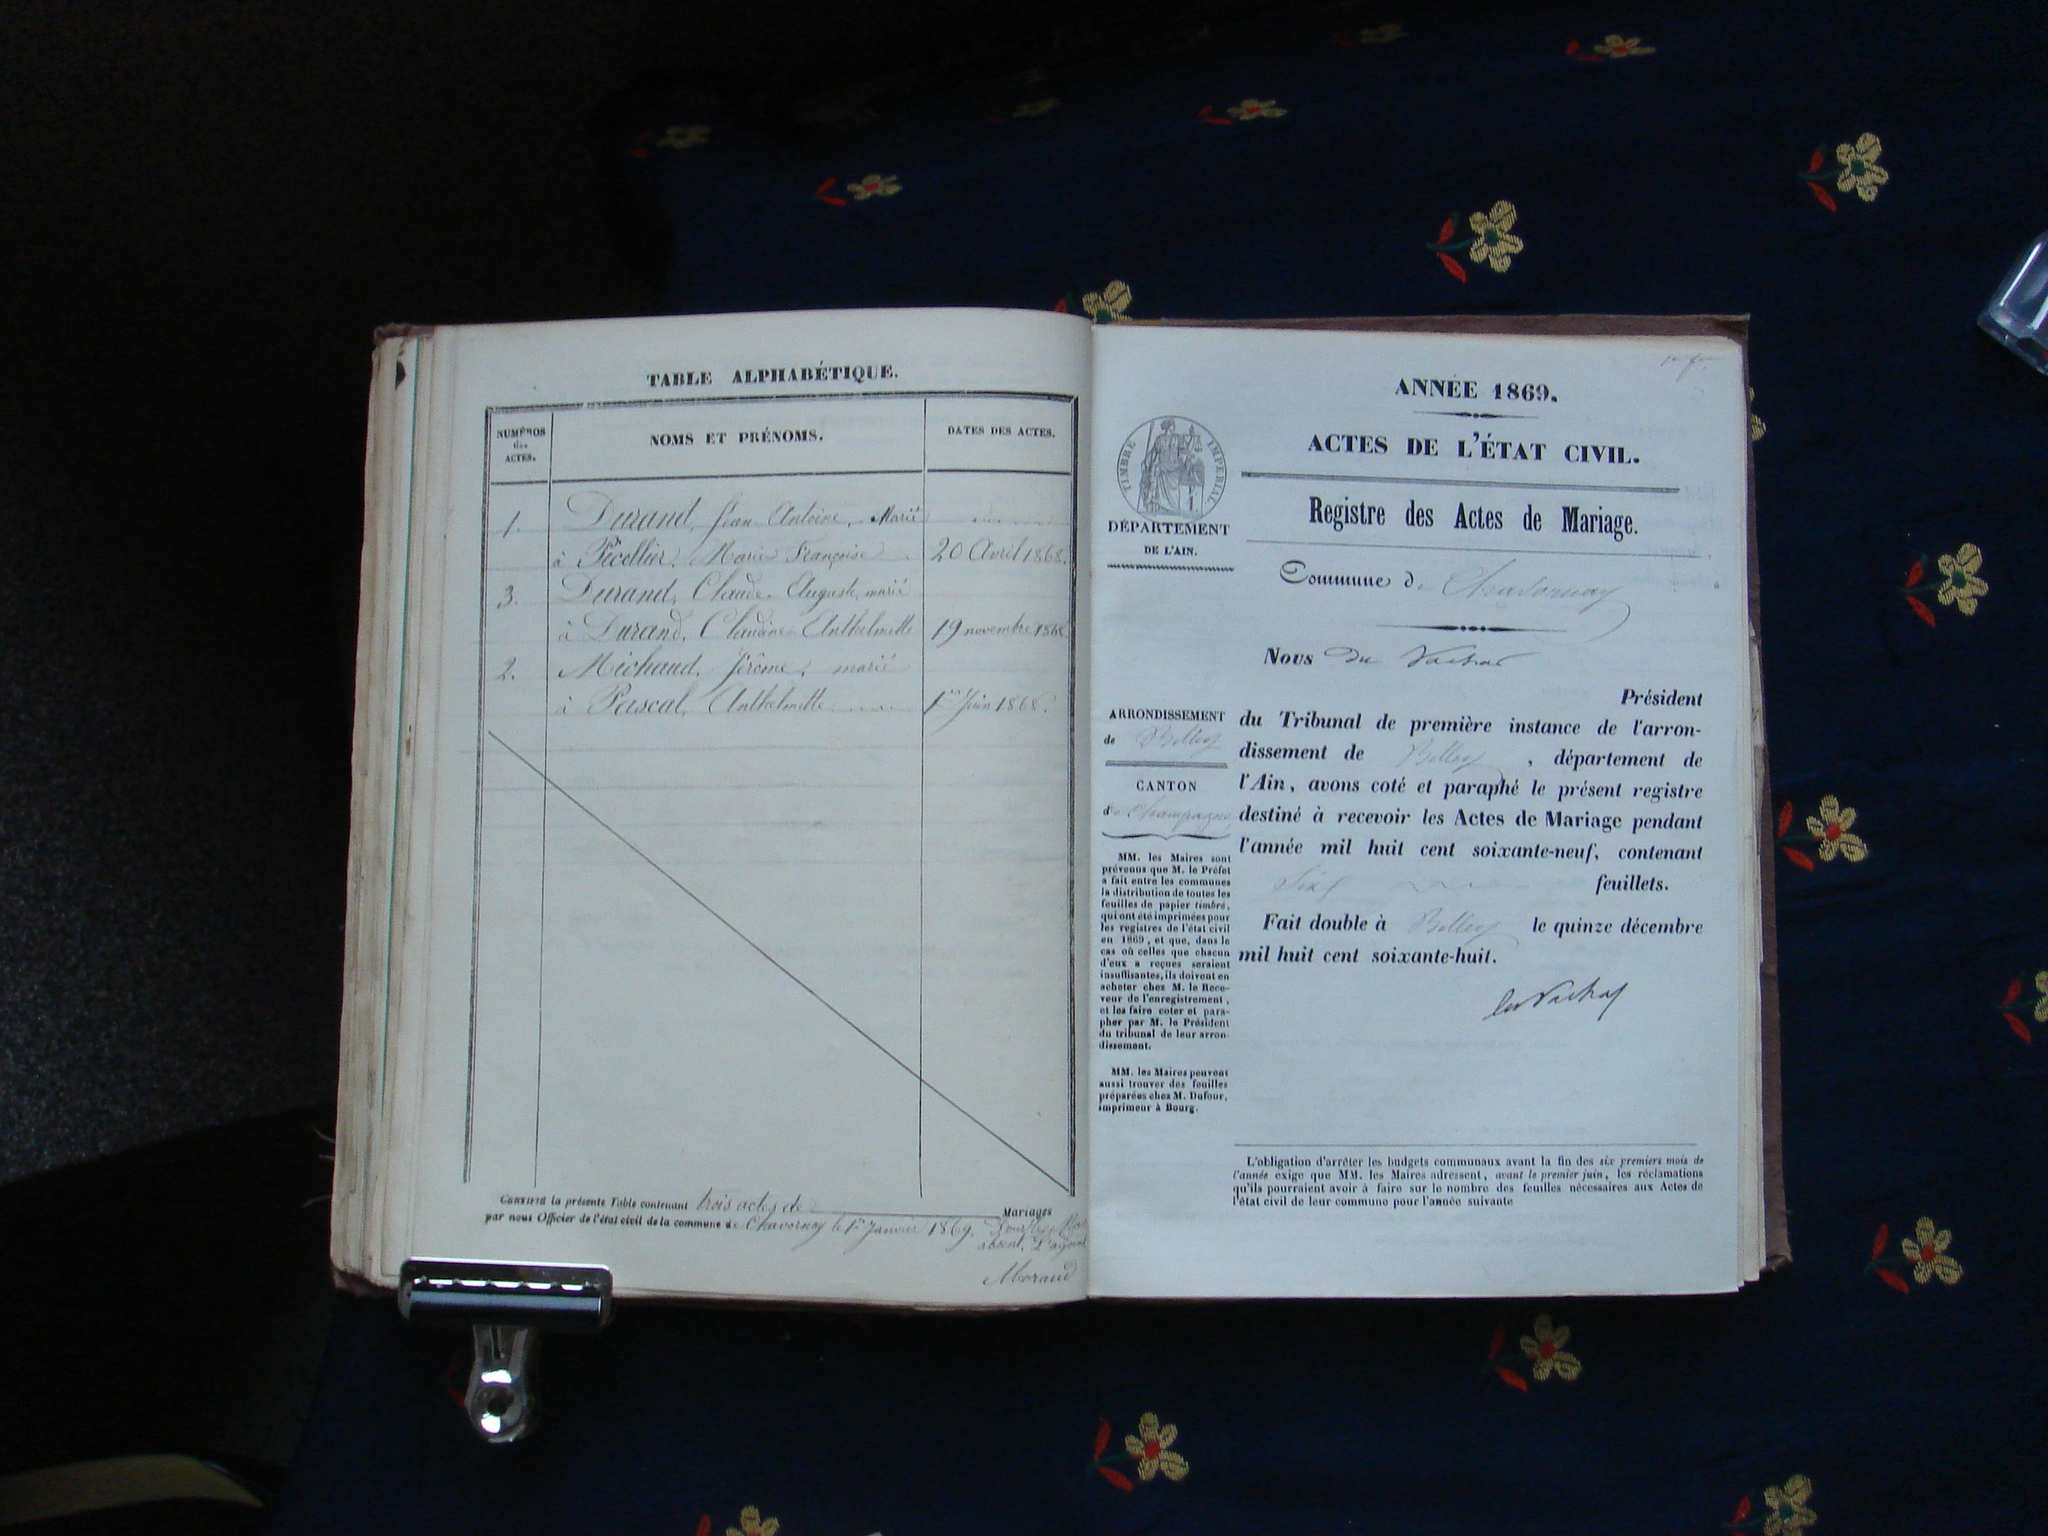 TABLE ALPHABÉTIQUE.
NUMÉROS
des
ACTES.
NOMS ET PRÉNOMS.
DATES DES ACTES.
1. Durand, Jean Antoine, Marié
à Pécollier, Marie Françoise 20 Avril 1868.
3. Durand, Claude Auguste, marié
à Durand, Claudine Anthelmette 19 novembre 1868
2. Michaud, Jérôme, marié
à Pascal, Anthelmette 1er Juin 1868.
CERTIFIÉ la présente Table contenant trois actes de Mariages
par nous Officier de l'état civil de la commune de Chavornay le 1er Janvier 1869. Pour le
absent, L'adjoint
Morand
ANNÉE 1869.
ACTES DE L'ÉTAT CIVIL.
Registre des Actes de Mariage.
TIMBRE IMPÉRIAL
DÉPARTEMENT
DE L'AIN.
Commune de Chavornay
Nous Du Vachat
Président
du Tribunal de première instance de l'arron-
dissement de Belley, département de
l'Ain, avons coté et paraphé le présent registre
destiné à recevoir les Actes de Mariage pendant
l'année mil huit cent soixante-neuf, contenant
Six feuillets.
Fait double à Belley le quinze décembre
mil huit cent soixante-huit.
du Vachat
ARRONDISSEMENT
de Belley
CANTON
de Champagne
MM. les Maires sont
prévenus que M. le Préfet
a fait entre les communes
la distribution de toutes les
feuilles de papier timbré,
qui ont été imprimées pour
les registres de l'état civil
en 1869, et que, dans le
cas où celles que chacun
d'eux a reçues seraient
insuffisantes, ils doivent en
acheter chez M. le Rece-
veur de l'enregistrement,
et les faire coter et para-
pher par M. le Président
du tribunal de leur arron-
dissement.
MM. les Maires peuvent
aussi trouver des feuilles
préparées chez M. Dufour,
imprimeur à Bourg.
L'obligation d'arrêter les budgets communaux avant la fin des six premiers mois de
l'année exige que MM. les Maires adressent, avant le premier juin, les réclamations
qu'ils pourraient avoir à faire sur le nombre des feuilles nécessaires aux Actes de
l'état civil de leur commune pour l'année suivante